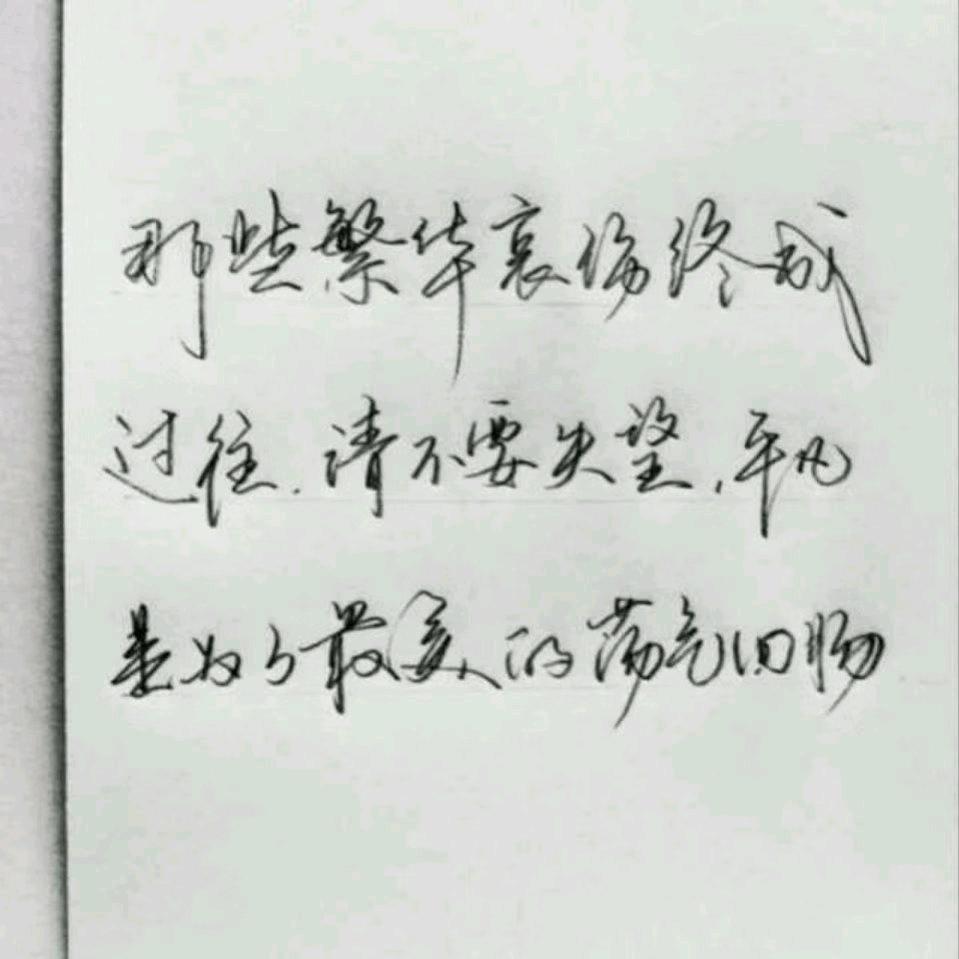 那些繁华哀伤终成
过往.请不要失望,平凡
是为了最美的荡气回肠